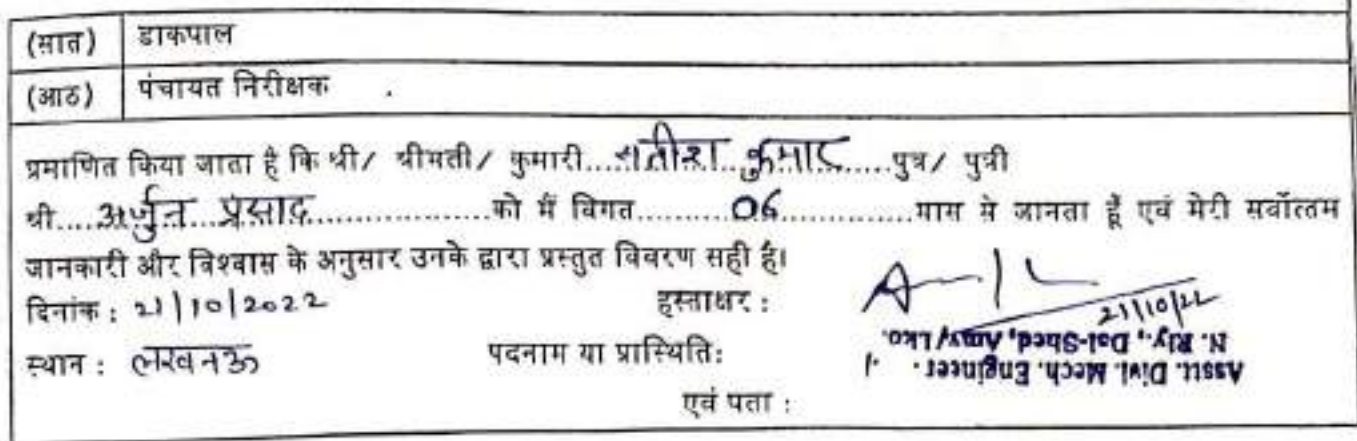 (सात) डाकपाल
(आठ) पंचायत निरीक्षक .
प्रमाणित किया जाता है कि श्री/ श्रीमती/ कुमारी.....सतीश...कुमार......पुत्र/ पुत्री
श्री.....अर्जुन...प्रसाद..................को मैं विगत..........06...............मास से जानता हूँ एवं मेरी सर्वोत्तम
जानकारी और विश्वास के अनुसार उनके द्वारा प्रस्तुत विवरण सही है।
दिनांक : 21/10/2022 हस्ताक्षर :
21/10/22
स्थान : लखनऊ पदनाम या प्रास्थिति:
Asstt. Divl. Mech. Engineer.
N. Rly., Dsl-Shed, Amv/Lko.
एवं पता :